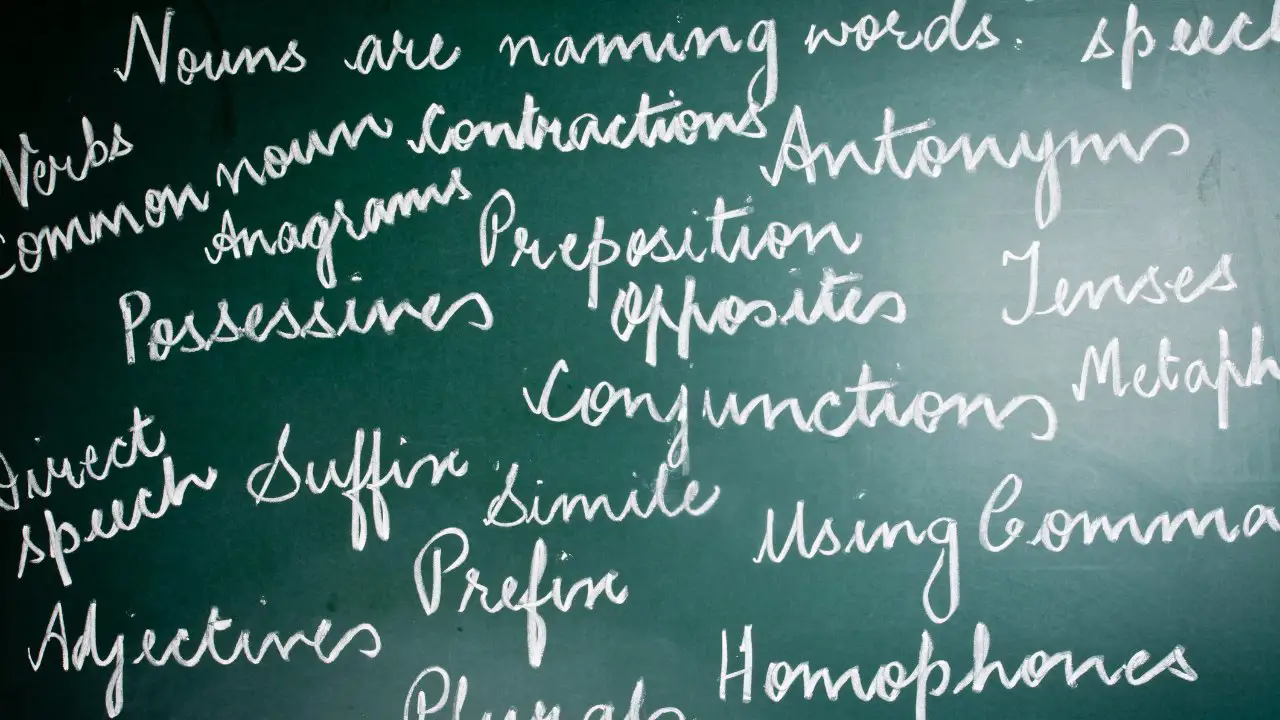 Nouns are naming words. speec
Verbs
Common noun contractions Antonyms
Anagrams Preposition
Possessives opposites Tenses
Conjunctions Metaph
Direct
speech Suffix Simile Using Comma
Prefix
Adjectives Homophones
Plurals